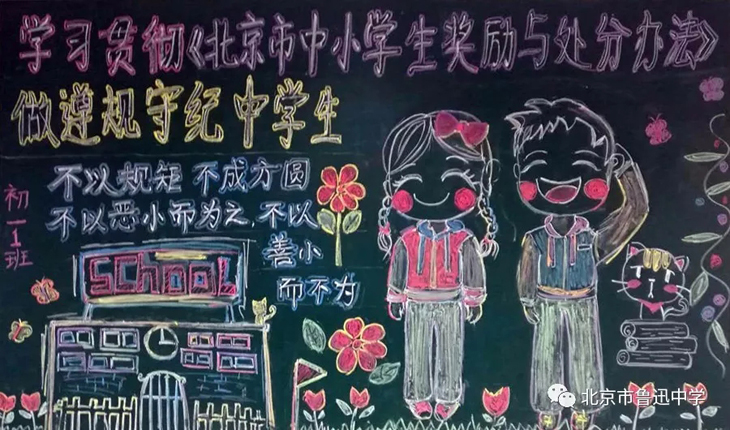 学习贯彻《北京市中小学生奖励与处分办法》
做遵规守纪中学生
初一1班
不以规矩 不成方圆
不以恶小而为之,不以
善小
而不为
SCHOOL
北京市鲁迅中学